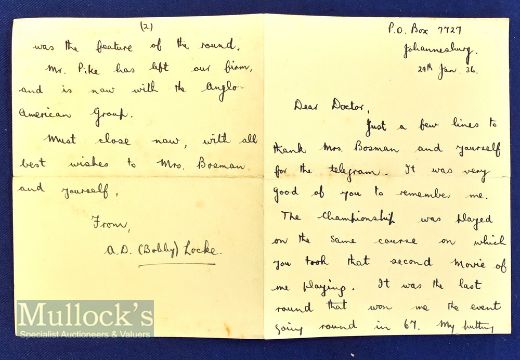 P.O. Box 7727
Johannesburg.
29th Jan 36.
Dear Doctor,
Just a few lines to
thank Mrs. Bosman and yourself
for the telegram. It was very
good of you to remember me.
The Championship was played
on the same course on which
you took that second movie of
me playing. It was the last
round that won me the event
going round in 67. My putting
(2)
was the feature of the round.
Mr. Pike has left our firm,
and is now with the Anglo-
American Group.
Must close now, with all
best wishes to Mrs. Bosman
and yourself,
From,
A.D. (Bobby) Locke.
Mullock's
Specialist Auctioneers & Valuers